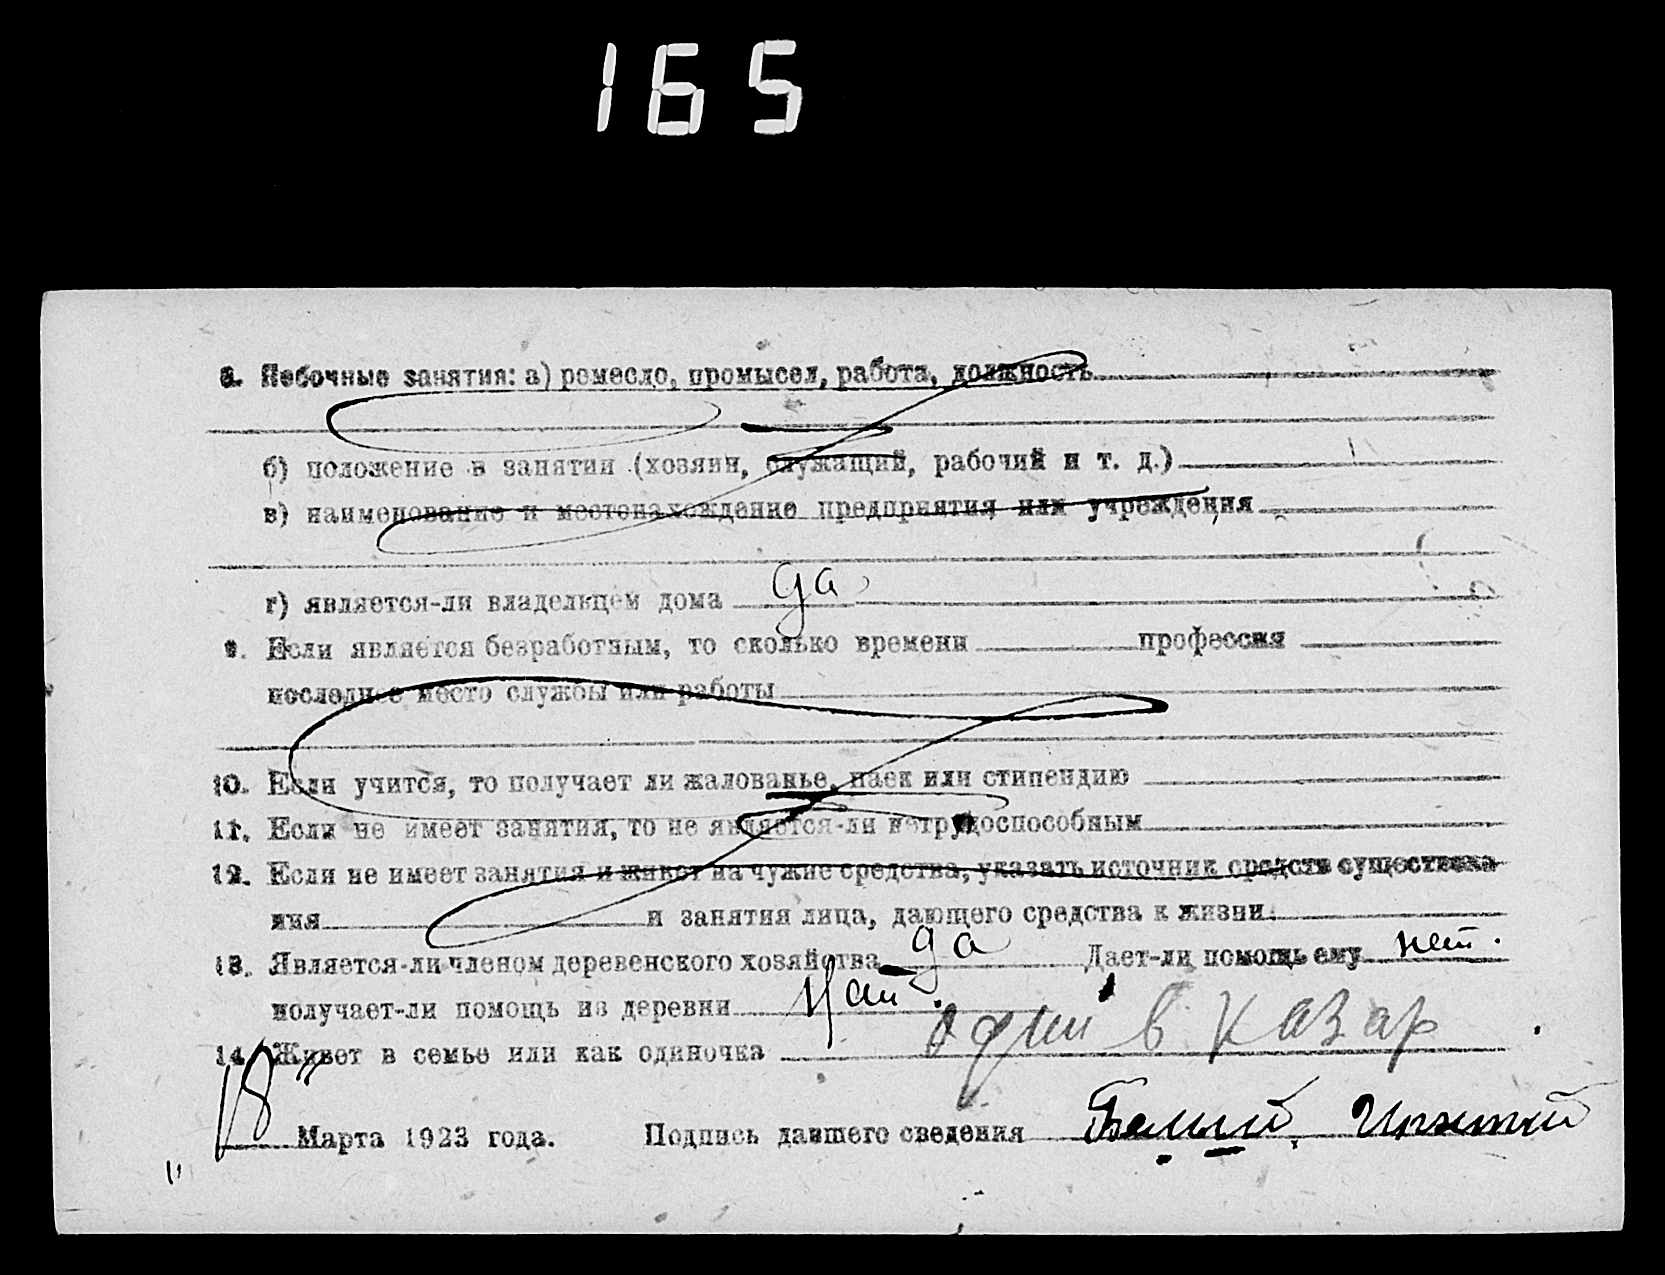 165
8. Побочные занятия: а) ремесло, промысел, работа, должность
б) положение в занятии (хозяин, служащий, рабочий и т. д.)
в) наименование и местонахождение предприятия или учреждения
г) является-ли владельцем дома да
9. Если является безработным, то сколько времени профессия
последнее место службы или работы
10. Если учится, то получает ли жалованье, паек или стипендию
11. Если не имеет занятия, то не является-ли нетрудоспособным
12. Если не имеет занятия и живет на чужие средства, указать источник средств существова-
ния и занятия лица, дающего средства к жизни
13. Является-ли членом деревенского хозяйства да Дает-ли помощь ему нет.
получает-ли помощь из деревни нет.
14. Живет в семье или как одиночка один в казар
18 Марта 1923 года. Подпись давшего сведения